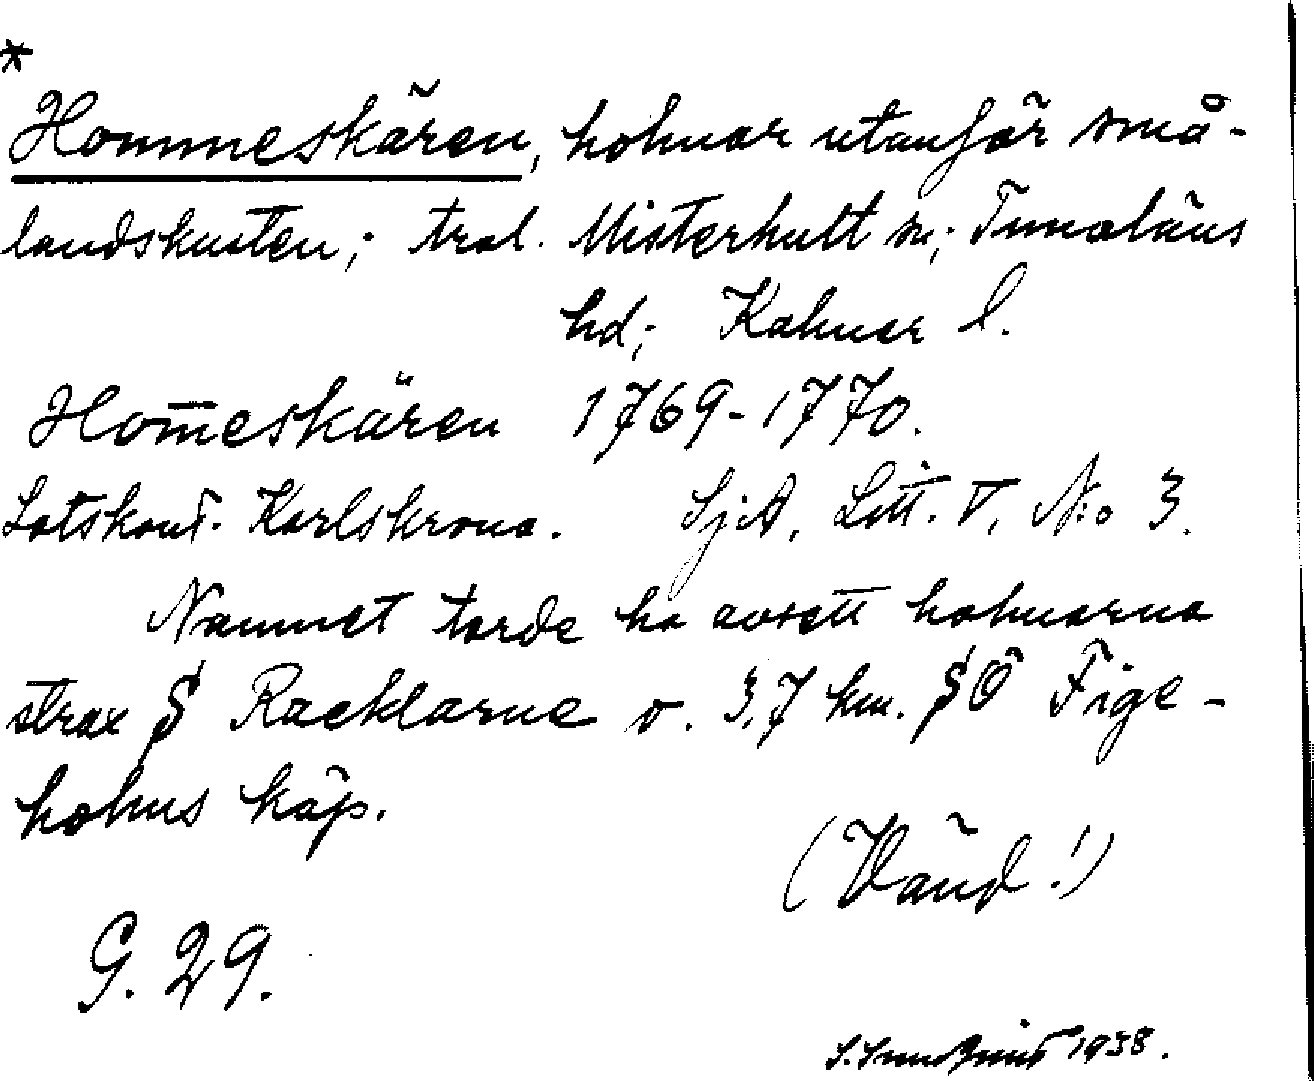 *
Hommeskären, holmar utanför små-
landskusten; trol. Misterhult sn; Tunaläns
hd; Kalmar l.
Hom̅eskären 1769-1770.
Lotskont. Karlskrona. SjA, Litt. V, N:o 3.
Namnet torde ha avsett holmarna
strax S Racklarne o. 3,7 km. SÖ Fige-
holms köp.
(Vänd!)
G. 29.
1938.